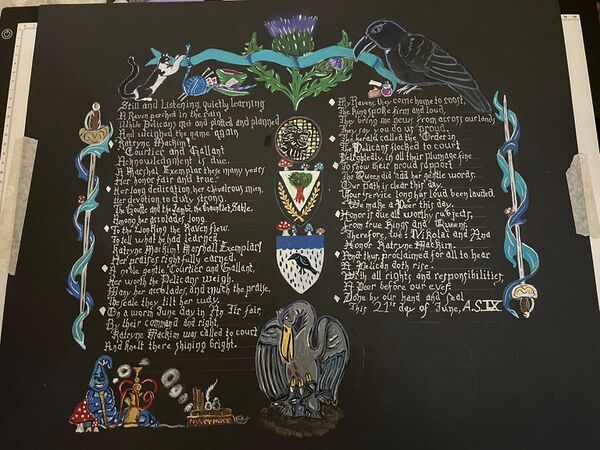 Still and Listening, quietly learning
A Raven perched in the rain
While Pelicans met and posted and planned
And weighed the name again
Katryne Mackim!
Courtier and Gallant
Acknowledgment is due.
A Marshal Exemplar these many years
Her honor fair and true.
Her long dedication, her chivalrous mien,
Her devotion to duty strong.
The and the the Sable,
Among her accolades long.
To the Lion King the Raven flew.
To tell what he had learned
Katryne Mackim! Marshall Exemplar!
Her praises rightfully earned.
A noble gentle, Courtier and Gallant,
Her worth the Pelicans weigh.
Many her accolades, and much the praise,
The scale they tilt her way.
On a warm June day in An Tir fair,
By their command and right,
Katryne Mackim was called to court
And knelt there shining bright.
My Ravens, they come home to roost,
The King spoke firm and loud,
They bring me news from across our lands
They say you do us proud.
The herald called the Order in
The Pelicans flocked to court
Delightedly, in all their plumage fine
To show their proud support.
The Queen did add her gentle words.
Our path is clear this day.
Your service long has loud been lauded,
We make a Peer this day.
Honor is due all worthy subjects,
From true King and Queen,
Therefore, We Nikolai and Ana
Honor Katryne Mackim.
And thus, proclaimed for all to hear
A Pelican doth rise.
With all rights and responsibilities,
A Peer before our eyes.
Done by our hand and seal
This 21st day of June, A.S. LIX
Nevermore